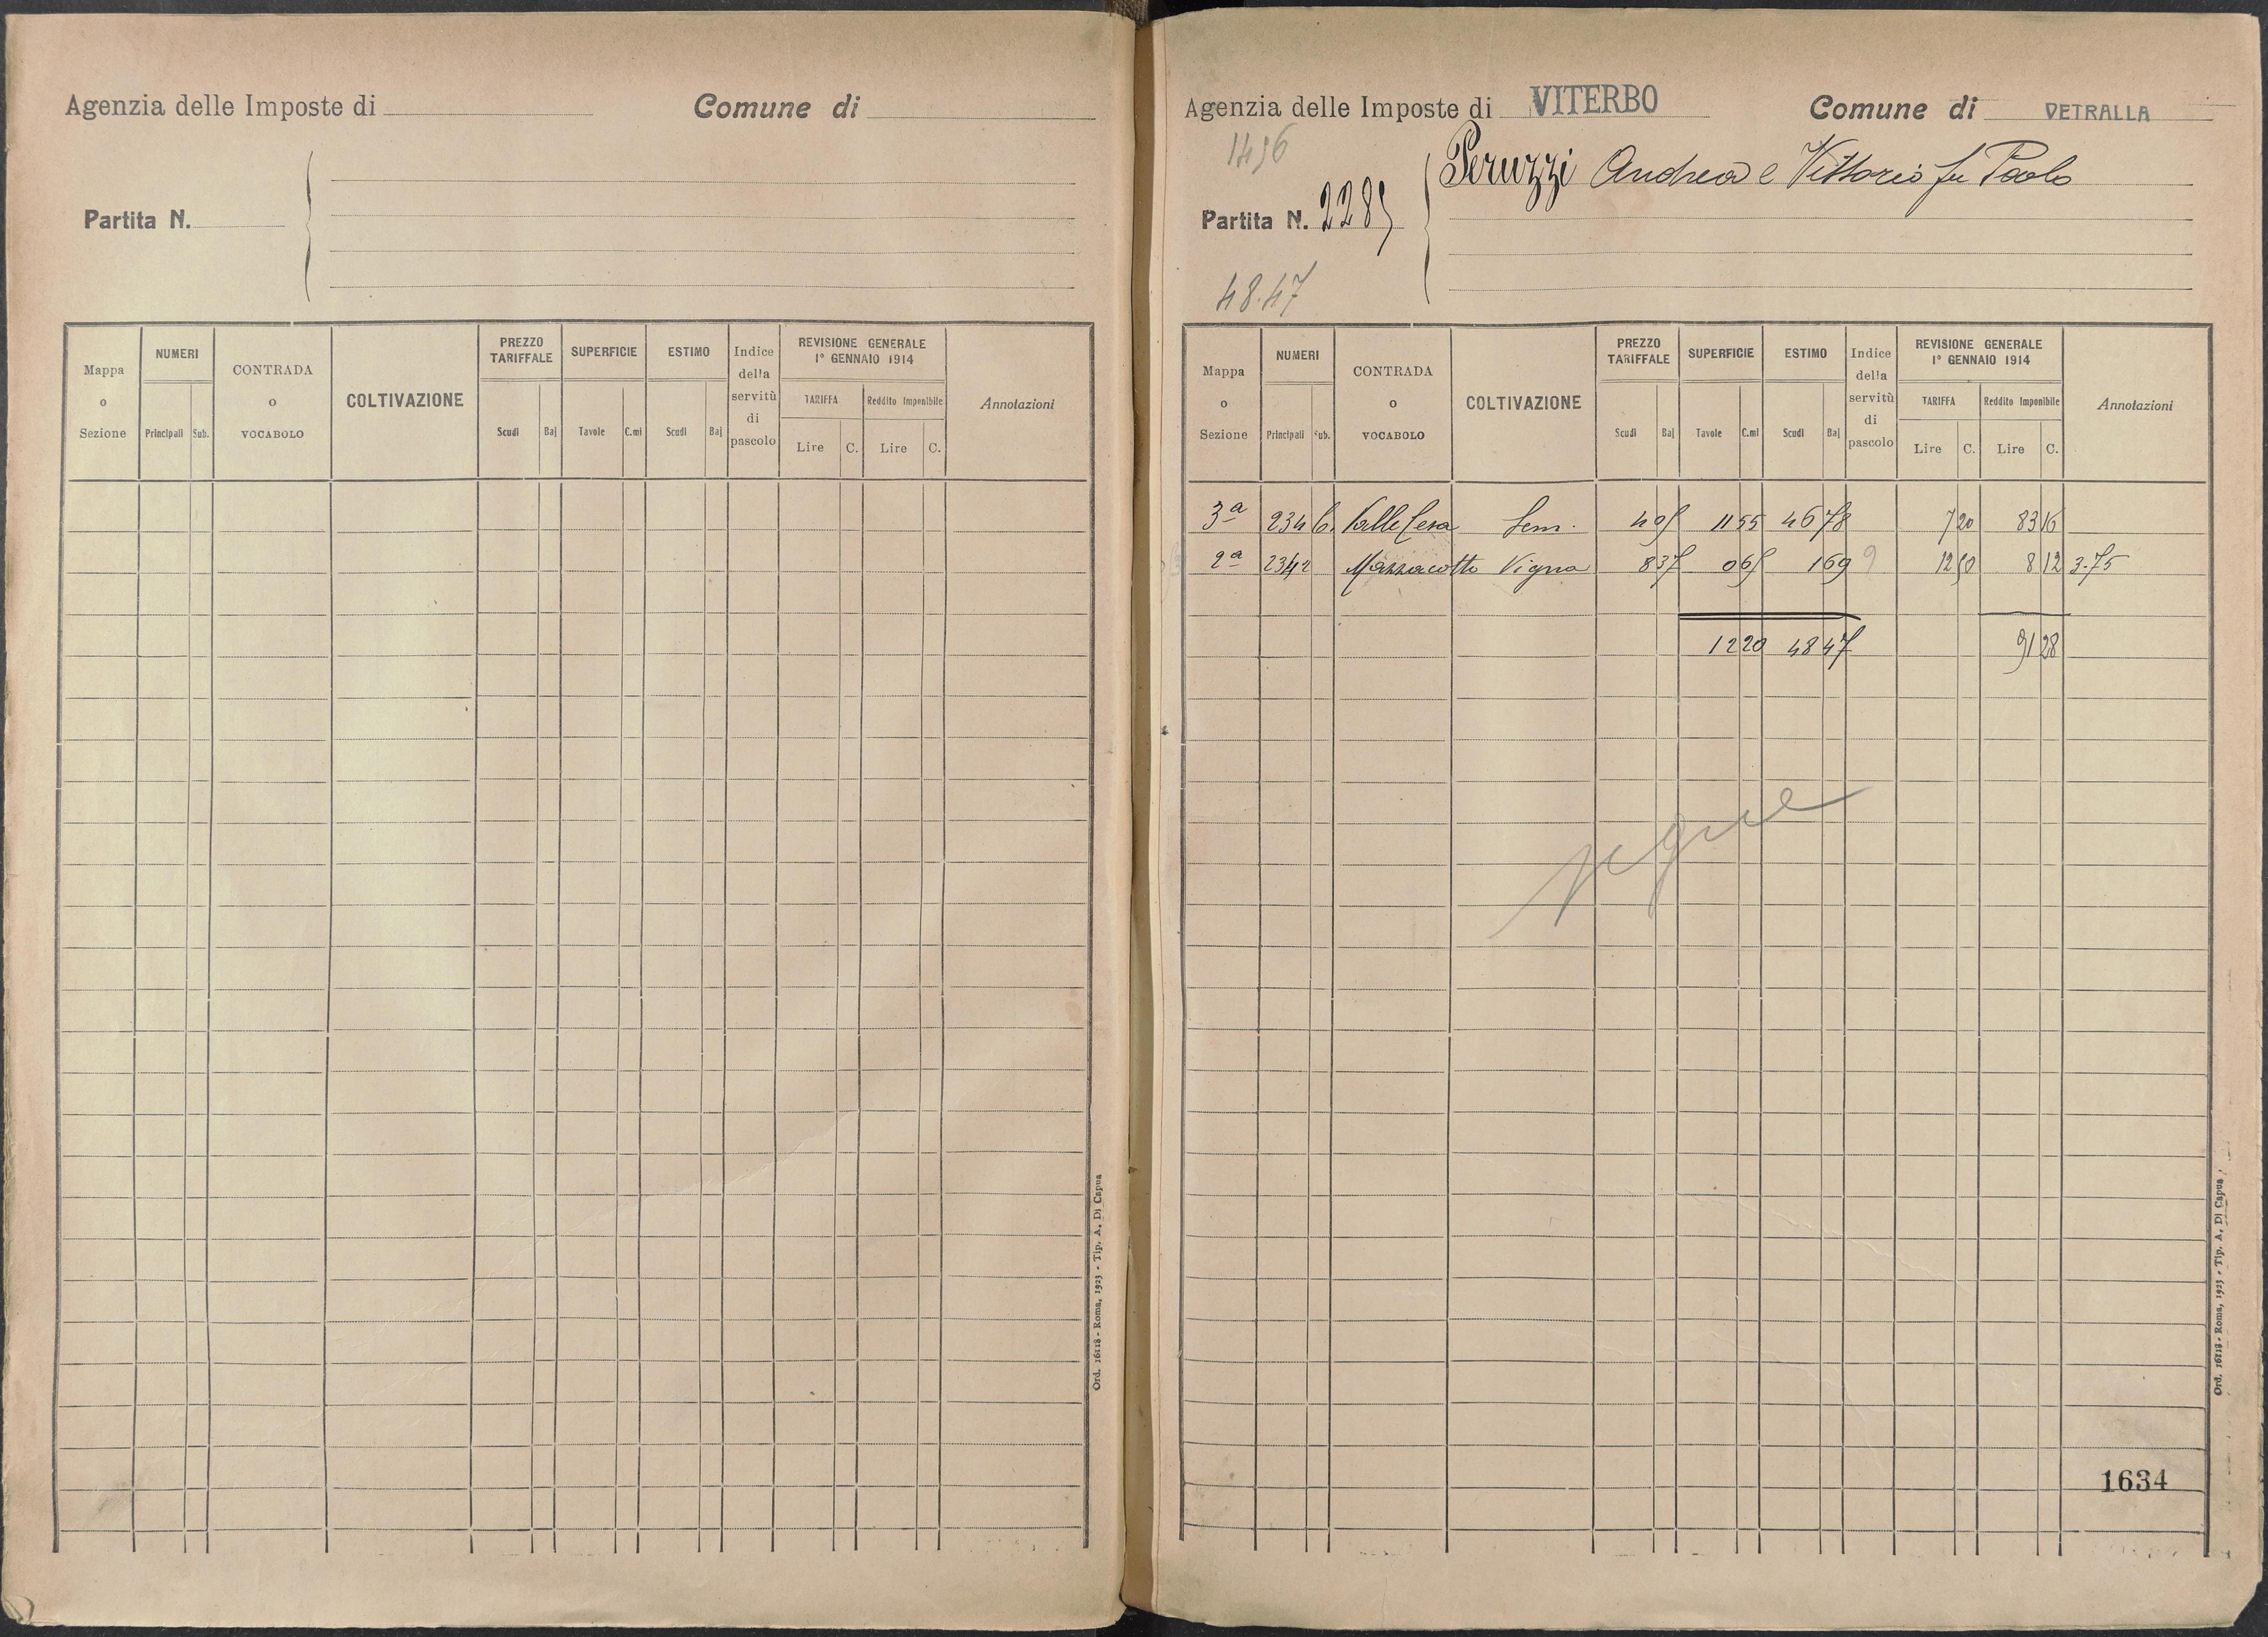 Agenzia delle Imposte di Comune di
Partita N.
Mappa o Sezione NUMERI Principali Sub. CONTRADA o VOCABOLO COLTIVAZIONE PREZZO TARIFFALE Scudi Baj SUPERFICIE Tavole C.mi ESTIMO Scudi Baj Indice della servitù di pascolo REVISIONE GENERALE 1° GENNAIO 1914 TARIFFA Lire C. Reddito Imponibile Lire C. Annotazioni
Ord. 16118 - Roma, 1923 - Tip. A. Di Capua
Agenzia delle Imposte di VITERBO Comune di VETRALLA
Peruzzi Andrea e Vittorio fu Paolo
Partita N. 2285
48.47
Mappa o Sezione NUMERI Principali Sub. CONTRADA o VOCABOLO COLTIVAZIONE PREZZO TARIFFALE Scudi Baj SUPERFICIE Tavole C.mi ESTIMO Scudi Baj Indice della servitù di pascolo REVISIONE GENERALE 1° GENNAIO 1914 TARIFFA Lire C. Reddito Imponibile Lire C. Annotazioni
3a 234 6. Valle Cesa Sem. 4 05 11 55 46 78 7 20 83 16
2a 2342 Mazzacotto Vigna 8 37 0 65 1 69 9 12 50 8 12 3.75
12 20 48 47 91 28
segue
1634
Ord. 16118 - Roma, 1923 - Tip. A. Di Capua